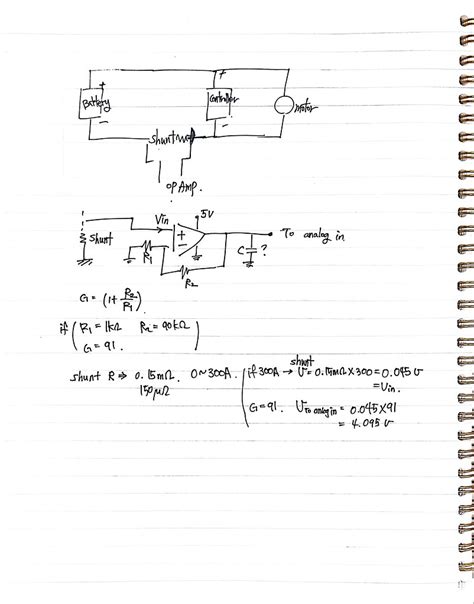 + +
Battery Controller motor
- -
shunt
OP Amp.
Vin 5V
shunt + - To analog in
R1 C ?
R2
G = (1 + R2/R1)
if ( R1 = 1kΩ R2 = 90kΩ )
G = 91.
shunt R ⇒ 0.15mΩ. 0~300A.
150μΩ
shunt
if 300A → V = 0.15mΩ × 300 = 0.045 V
= Vin.
G = 91. V To analog in = 0.045 × 91
= 4.095 V